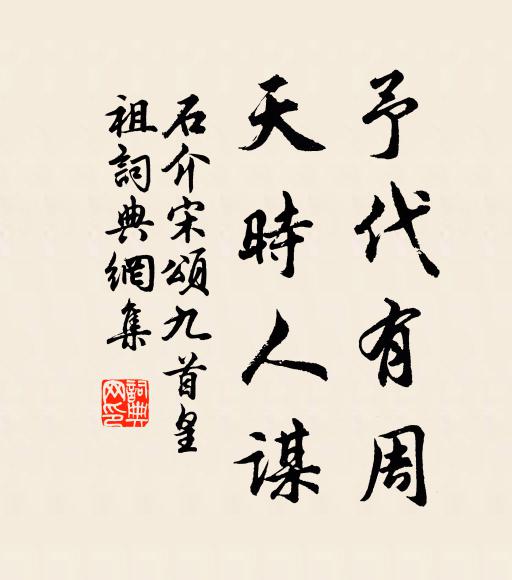 予代有周
天時人謀
石介宋頌九首皇
祖詞典網集
詞典
网印